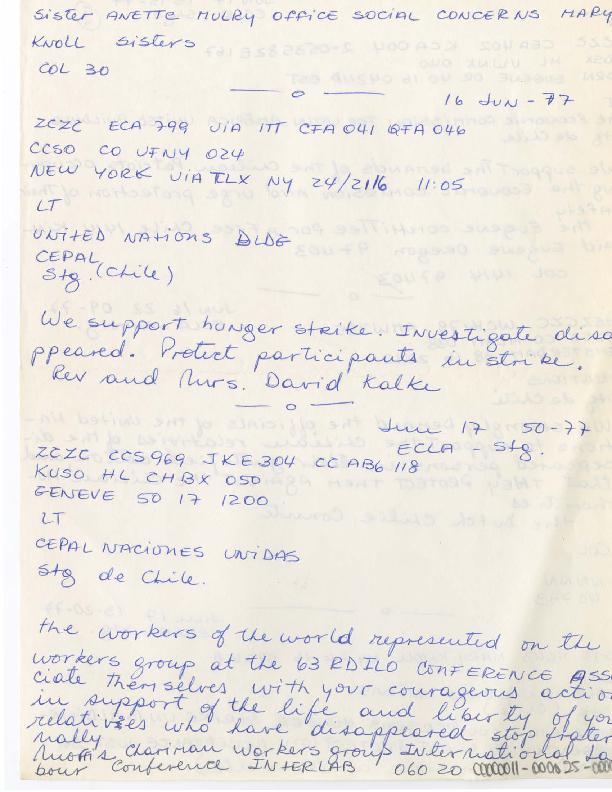 Sister ANETTE MULRY OFFICE SOCIAL CONCERNS MARY
KNOLL Sisters
COL 30
16 JUN - 77
ZCZC ECA 799 VIA ITT CFA 041 QFA 046
CCSO CO UFNY 024
NEW YORK VIA TLX NY 24/2116 11:05
LT
UNITED NATIONS BLDE
CEPAL
Stg. (Chile)
We support hunger strike. Investigate disa
ppeared. Protect participants in strike.
Rev and Mrs. David Kalke
June 17 50-77
ECLA - Stg.
ZCZC CCS969 JKE304 CC AB6 118
KUSO HL CHBX 050
GENEVE 50 17 1200
LT
CEPAL NACIONES UNIDAS
Stg de Chile.
the workers of the world represented on the
workers group at the 63 RDILO CONFERENCE ASSO
ciate themselves with your courageous action
in support of the life and liberty of you
relatives who have disappeared stop frater
nally
Morris Chariman Workers group International La
bour Conference INTERLAB 060 20 0000011-000025-000